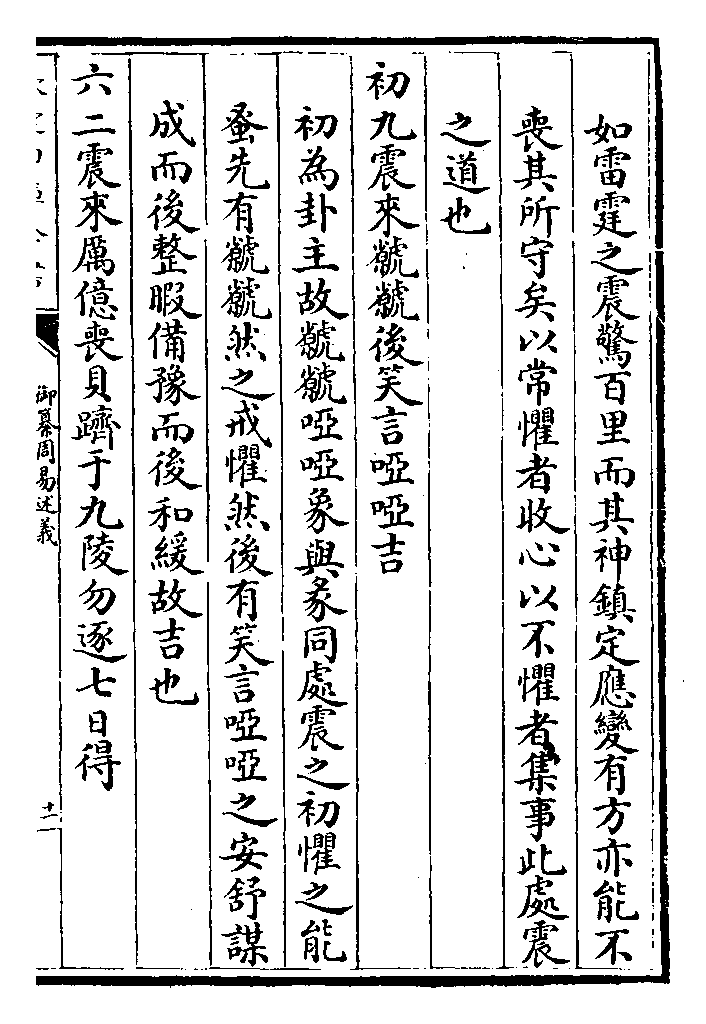 如雷霆之震驚百里而其神鎮定應變有方亦能不
喪其所守矣以常懼者收心以不懼者集事此處震
之道也
初九震來虩虩後笑言啞啞吉
初為卦主故虩虩啞啞象與彖同處震之初懼之能
蚤先有虩虩然之戒懼然後有笑言啞啞之安舒謀
成而後整暇備豫而後和緩故吉也
六二震來厲億喪貝躋于九陵勿逐七日得
御纂周易述義
十二